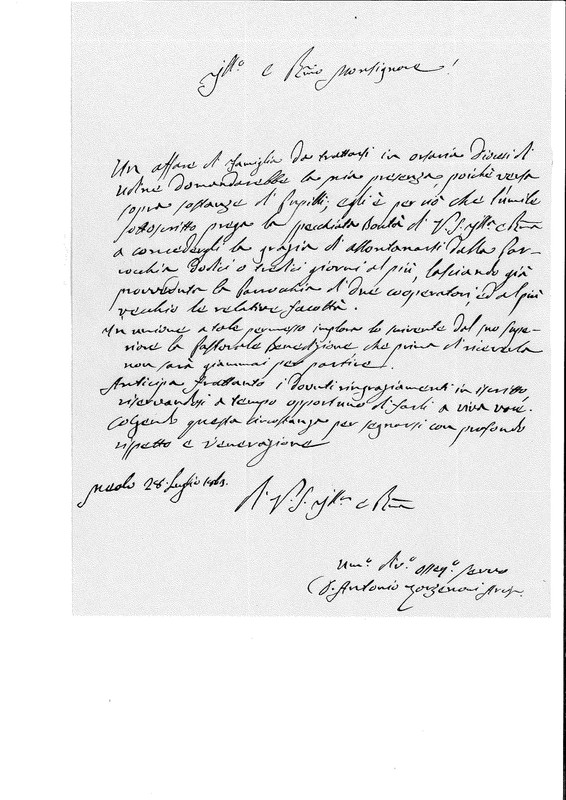 Illmo e Rmo Monsignore!
Un affare di famiglia da trattarsi in Diocesi di
Udine domandarebbe la mia presenza, poichè versa
sopra sostanze di Pupilli; egli è per ciò che l'umile
sottoscritto prega la specchiata Bontà di V. S. Illma e Rma
a concedergli la grazia di allontanarsi dalla Par-
rocchia dodici o tredici giorni al più, lasciando già
provveduta la Parrocchia di due cooperatori, ed al più
vecchio le relative facoltà.
In unione a tale permesso implora lo scrivente dal suo Supe-
riore la Pastorale Benedizione che prima di riceverla
non sarà giammai per partire.
Anticipa frattanto i dovuti ringraziamenti in iscritto
riservandosi a tempo opportuno di farli a viva voce.
Cogendo questa circostanza per segnarsi con profondo
rispetto e venerazione
28 Luglio
Di V. S. Illma e Rma
Umo. Divo. Osseqo. servo
D. Antonio